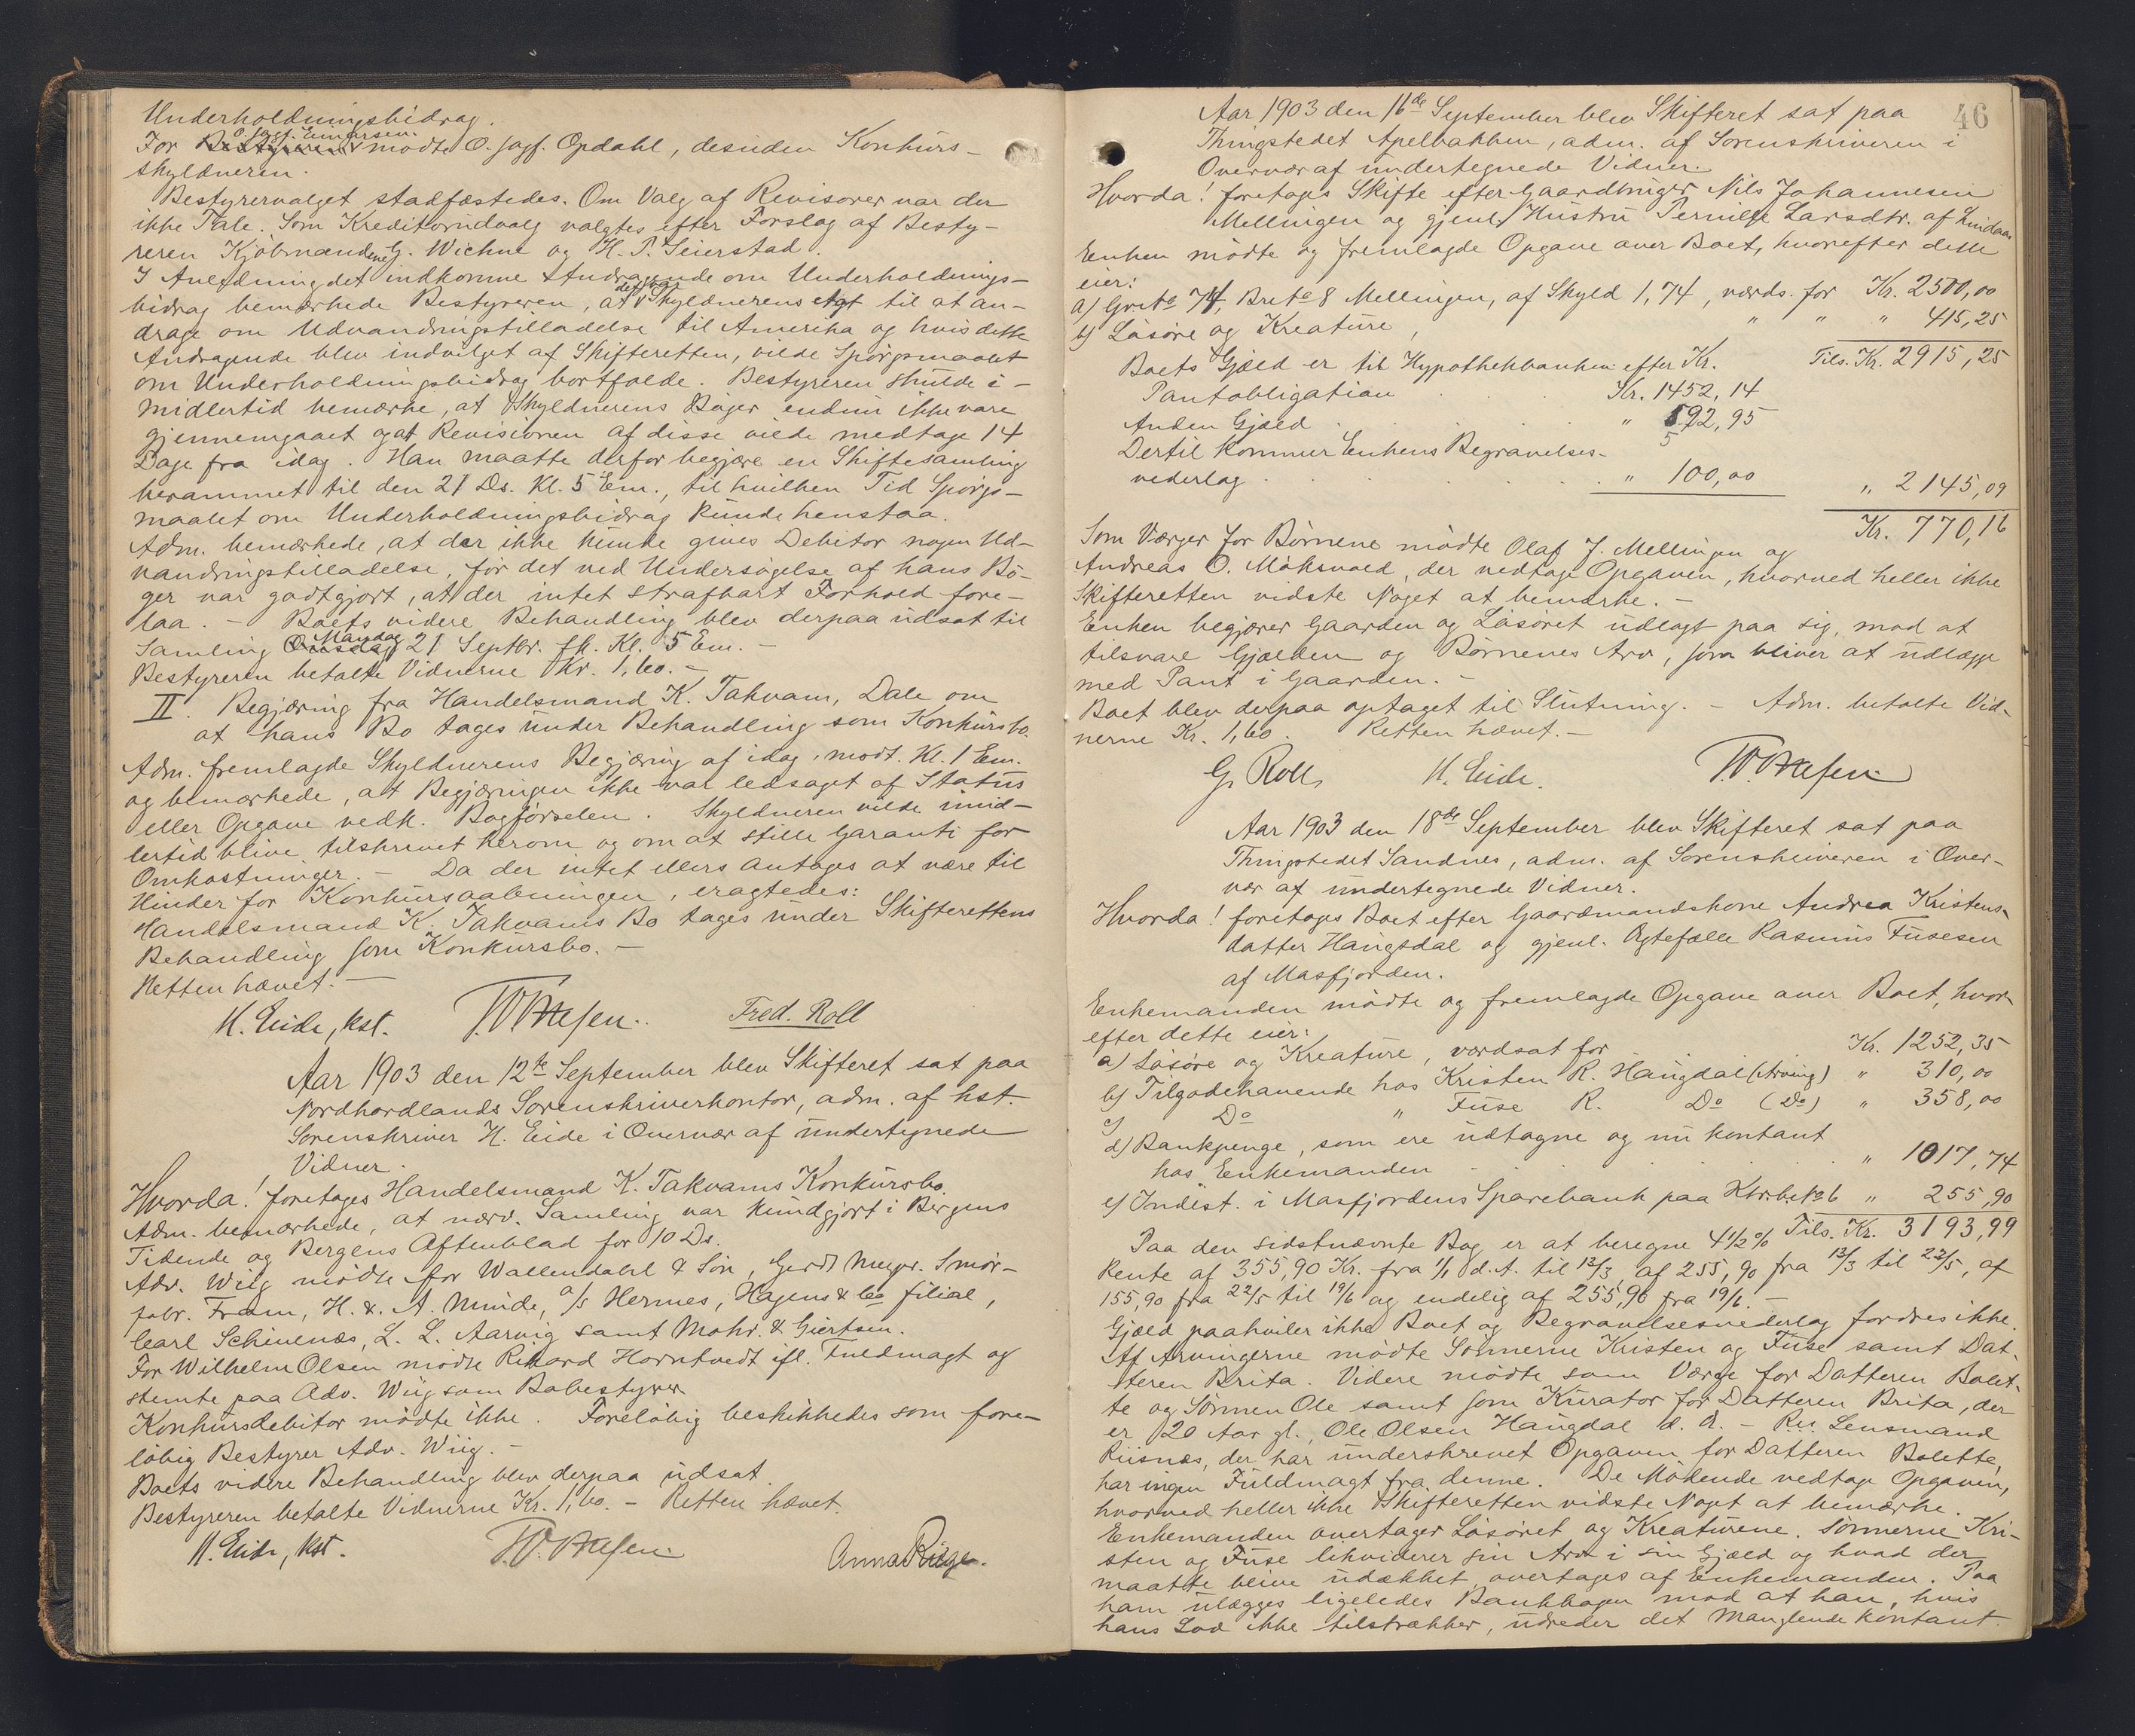 Underholdningsbidrag.
O. Sagf. Einarsen
For Bestyreren mødte O. Sagf. Opdahl, desuden Konkurs-
skyldneren.
Bestyrervalget stadfæstedes. Om Valg af Revisorer var der
ikke Tale. Som Kreditorudvalg valgtes efter Forslag af Besty-
reren Kjøbmændene G. Wichne og H. P. Seierstad.
I Anledning det indkomne Andragende om Underholdnings-
bidrag bemærkede Bestyreren, at det var Skyldnerens Agt til at an-
drage om Udvandringstilladelse til Amerika og hvis dette
Andragende blev indvilget af Skifteretten, vilde Spørgsmaalet
om Underholdningsbidrag bortfalde. Bestyreren skulde i-
midlertid bemærke, at Skyldnerens Bøger endnu ikke vare
gjennemgaaet og at Revisionen af disse vilde medtage 14
Dage fra idag. Han maatte derfor begjære en Skiftesamling
berammet til den 21 Ds. Kl. 5 Em., til hvilken Tid Spørgs-
maalet om Underholdningsbidrag kunde henstaa.
Adm. bemærkede, at der ikke kunde gives Debitor nogen Ud-
vandringstilladelse, før det ved Undersøgelse af hans Bø-
ger var godtgjort, at der intet strafbart Forhold fore-
laa. - Boets videre Behandling blev derpaa udsat til
Mandag
Samling Onsdag 21 Septbr. fk. Kl. 5 Em. -
Bestyreren betalte Vidnerne Kr. 1,60. -
II. Begjæring fra Handelsmand K. Takvam, Dale om
at hans Bo tages under Behandling som Konkursbo.
Adm. fremlagde Skyldnerens Begjæring af idag, modt. Kl. 1 Em.
og bemærkede, at Begjæringen ikke var ledsaget af Status
eller Opgave vedk. Bogførselen. Skyldneren vilde imid-
lertid blive tilskrevet herom og om at stille Garanti for
Omkostninger. - Da der intet ellers antages at være til
Hinder for Konkursaabningen, eragtedes:
Handelsmand K. Takvams Bo tages under Skifterettens
Behandling som Konkursbo. -
Retten hævet. -
H. Eide, kst. Fred. Roll
Aar 1903 den 12te September blev Skifteret sat paa
Nordhordlands Sorenskriverkontor, adm. af kst.
Sorenskriver H. Eide i Overvær af undertegnede
Vidner.
Hvorda! foretages Handelsmand K. Takvams Konkursbo.
Adm. bemærkede, at nærv. Samling var kundgjort i Bergens
Tidende og Bergens Aftenblad for 10 Ds.
Adv. Wiig mødte for Wallendahl & Søn, Gerdt Meyer. Smør-
fabr. Fram, H. & A. Minde, A/s Hermes, Hagens & Co filial,
Carl Schiuenæs, L. L. Aarvig samt Mohr & Giertsen.
For Wilhelm Olsen mødte Rikard Horntvedt ifl. Fuldmagt og
stemte paa Adv. Wiig som Bobestyrer.
Konkursdebitor mødte ikke. Foreløbig beskikkedes som fore-
løbig Bestyrer Adv. Wiig. -
Boets videre Behandling blev derpaa udsat.
Bestyreren betalte Vidnerne Kr. 1,60. - Retten hævet.
H. Eide, kst. Anna Rüge.
46
Aar 1903 den 16de September blev Skifteret sat paa
Thingstedet Apelbakken, adm. af Sorenskriveren i
Overvær af undertegnede Vidner.
Hvorda! foretages Skifte efter Gaardbruger Nils Johannesen
Mellingen og gjenl. Hustru Pernille Larsdtr. af Lindaas
Enken mødte og fremlagde Opgave over Boet, hvorefter dette
eier:
a) Grnr 74, Brnr 8 Mellingen, af Skyld 1,74, værds. for Kr. 2500,00
b) Løsøre og Kreature, " " " 415,25
Tils. Kr. 2915,25
Boets Gjæld er til Hypothekbanken efter Kr.
Pantobligation Kr. 1452,14
Anden Gjæld " 592,95
Dertil kommer Enkens Begravelses-
vederlag " 100,00 " 2145,09
Kr. 770,16
Som Værger for Børnene mødte Olaf J. Mellingen og
Andreas O. Moksvold, der vedtage Opgaven, hvorved heller ikke
Skifteretten vidste Noget at bemærke. -
Enken begjærer Gaarden og Løsøret udlagt paa sig, mod at
tilsvare Gjælden og Børnenes Arv, som bliver at udlægge
med Pant i Gaarden. -
Boet blev derpaa optaget til Slutning. - Adm. betalte Vid-
nerne Kr. 1,60. Retten hævet. -
G. Roll H. Eide.
Aar 1903 den 18de September blev Skifteret sat paa
Thingstedet Sandnes, adm. af Sorenskriveren i Over-
vær af undertegnede Vidner.
Hvorda! foretages Boet efter Gaardmandskone Andrea Kristens-
datter Haugsdal og gjenl. Ægtefælle Rasmus Fusesen
af Masfjorden.
Enkemanden mødte og fremlagde Opgave over Boet, hvor-
efter dette eier:
a) Løsøre og Kreature, værdsat for Kr. 1252,35
b) Tilgodehavende hos Kristen R. Haugdal (Arving) " 310,00
c) Do " Fuse R. Do (Do) " 358,00
d) Bankpenge, som ere udtagne og nu kontant
hos Enkemanden " 1017,74
e) Indest. i Masfjordens Sparebank paa Ktrb. No 6 " 255,90
Tils. Kr. 3193,99
Paa den sidstnævnte Bog er at beregne 4 1/2 %
Rente af 355,90 Kr. fra 1/1 d. A. til 13/3, af 255,90 fra 13/3 til 22/5, af
155,90 fra 22/5 til 19/6 og endelig af 255,90 fra 19/6. -
Gjæld paahviler ikke Boet og Begravelsesvederlag fordres ikke.
Af Arvingerne mødte Sønnerne Kristen og Fuse samt Dat-
teren Brita. Videre mødte som Værge for Datteren Bolet-
te og Sønnen Ole samt som Kurator for Datteren Brita, der
er 20 Aar gl., Ole Olsen Haugdal d. æ. - Ru. Lensmand
Riisnæs, der har underskrevet Opgaven for Datteren Bolette,
har ingen Fuldmagt fra denne. De Mødende vedtage Opgaven,
hvorved heller ikke Skifteretten vidste Noget at bemærke.
Enkemanden overtager Løsøret og Kreaturene. Sønnerne Kri-
sten og Fuse likviderer sin Arv i sin Gjæld og hvad der
maatte blive udækket overtages af Enkemanden. Paa
ham ulægges ligeledes Bankbogen mod at han, hvis
hans Lod ikke tilstrækker, udreder det Manglende kontant.